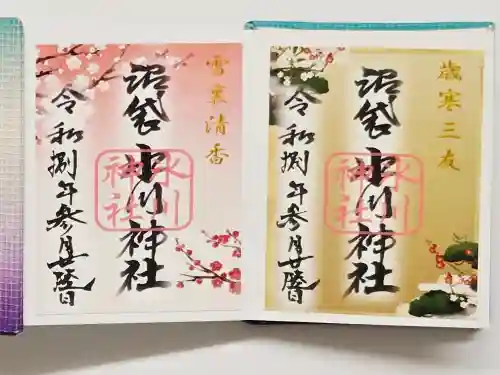 歳寒三友
沼袋氷川神社
氷川神社
令和捌年参月廿
雪裏清香
沼袋氷川神社
氷川神社
令和捌年参月廿